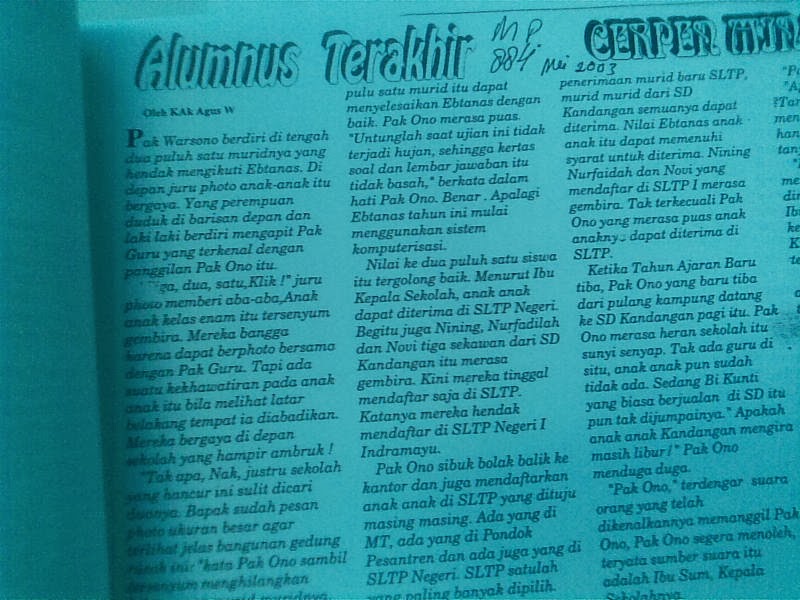 Alumnus Terakhir
MP
884
Mei 2003
CERPEN
Oleh KAk Agus W
Pak Warsono berdiri di tengah
dua puluh satu muridnya yang
hendak mengikuti Ebtanas. Di
depan juru photo anak-anak itu
bergaya. Yang perempuan
duduk di barisan depan dan
laki laki berdiri mengapit Pak
Guru yang terkenal dengan
panggilan Pak Ono itu.
dua, satu,Klik !" juru
photo memberi aba-aba,Anak
anak kelas enam itu tersenyum
gembira. Mereka bangga
karena dapat berphoto bersama
dengan Pak Guru. Tapi ada
suatu kekhawatiran pada anak
anak itu bila melihat latar
belakang tempat ia diabadikan.
Mereka bergaya di depan
sekolah yang hampir ambruk !
"Tak apa, Nak, justru sekolah
yang hancur ini sulit dicari
duanya. Bapak sudah pesan
photo ukuran besar agar
terlihat jelas bangunan gedung
"kata Pak Ono sambil
tersenyum menghilangkan
muridnya.
pulu satu murid itu dapat
menyelesaikan Ebtanas dengan
baik. Pak Ono merasa puas.
"Untunglah saat ujian ini tidak
terjadi hujan, sehingga kertas
soal dan lembar jawaban itu
tidak basah," berkata dalam
hati Pak Ono. Benar . Apalagi
Ebtanas tahun ini mulai
menggunakan sistem
komputerisasi.
Nilai ke dua puluh satu siswa
itu tergolong baik. Menurut Ibu
Kepala Sekolah, anak anak
dapat diterima di SLTP Negeri.
Begitu juga Nining, Nurfadilah
dan Novi tiga sekawan dari SD
Kandangan itu merasa
gembira. Kini mereka tinggal
mendaftar saja di SLTP.
Katanya mereka hendak
mendaftar di SLTP Negeri I
Indramayu.
Pak Ono sibuk bolak balik ke
kantor dan juga mendaftarkan
anak anak di SLTP yang dituju
masing masing. Ada yang di
MT, ada yang di Pondok
Pesantren dan ada juga yang di
SLTP Negeri. SLTP satulah
yang paling banyak dipilih.
penerimaan murid baru SLTP,
murid murid dari SD
Kandangan semuanya dapat
diterima. Nilai Ebtanas anak
anak itu dapat memenuhi
syarat untuk diterima. Nining
Nurfaidah dan Novi yang
mendaftar di SLTP I merasa
gembira. Tak terkecuali Pak
Ono yang merasa puas anak
dapat diterima di
SLTP.
Ketika Tahun Ajaran Baru
tiba, Pak Ono yang baru tiba
dari pulang kampung datang
ke SD Kandangan pagi itu. Pak
Ono merasa heran sekolah itu
sunyi senyap. Tak ada guru di
situ, anak anak pun sudah
tidak ada. Sedang Bi Kunti
yang biasa berjualan di SD itu
pun tak dijumpainya." Apakah
anak anak Kandangan mengira
masih libur!" Pak Ono
menduga duga.
"Pak Ono," terdengar suara
orang yang telah
dikenalkannya memanggil Pak
Ono, Pak Ono segera menoleh,
teryata sumber suara itu
adalah Ibu Sum, Kepala
Sekolahnya